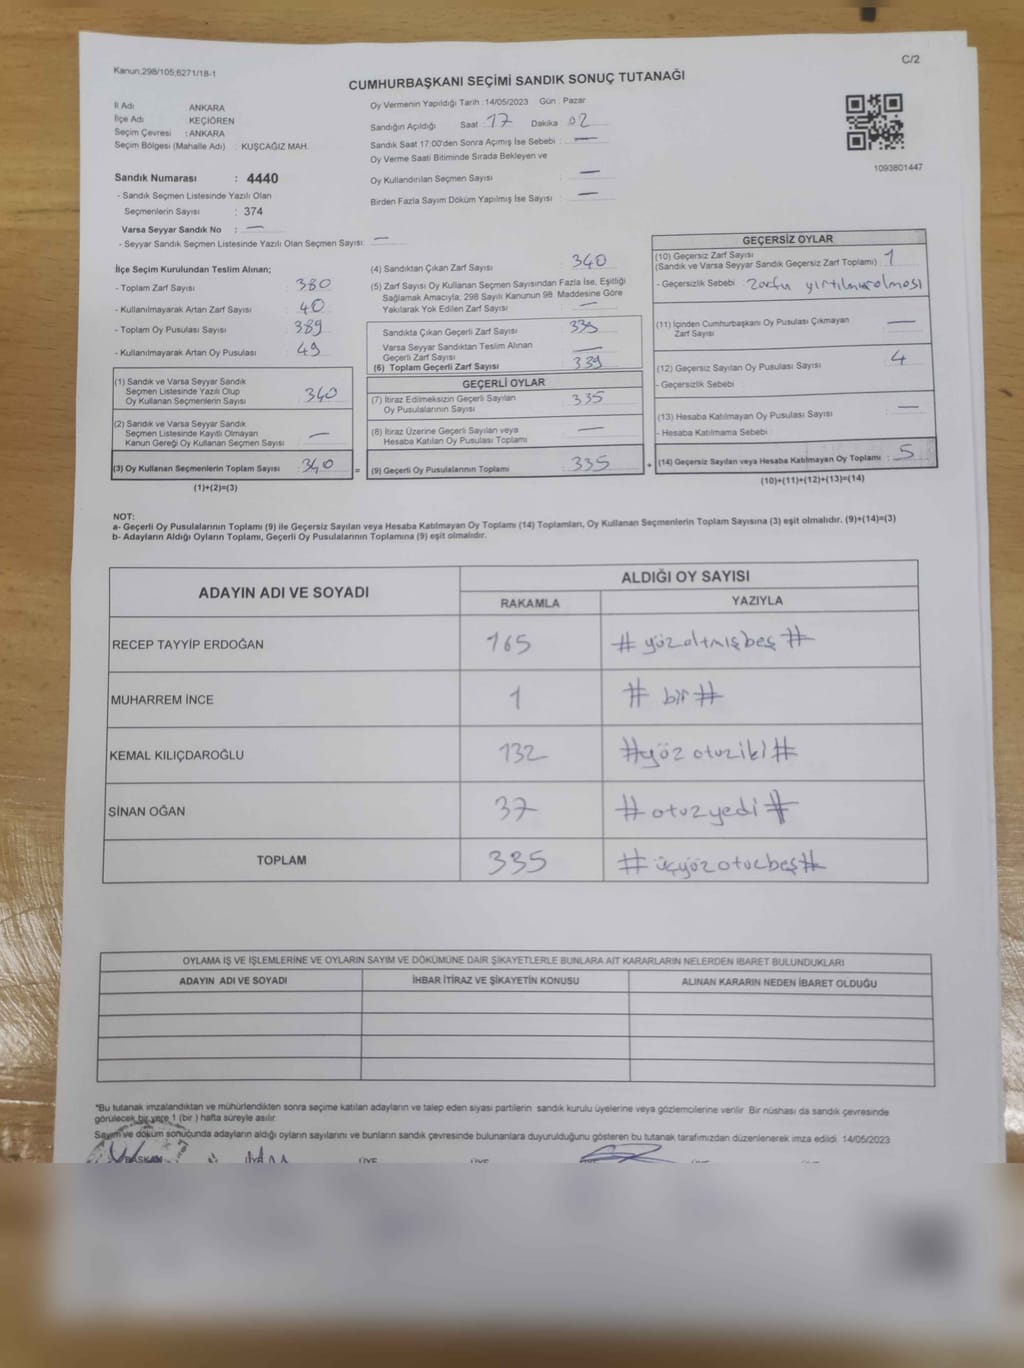 Kanun:298/105;6271/18-1
C/2
CUMHURBAŞKANI SEÇİMİ SANDIK SONUÇ TUTANAĞI
İl Adı : ANKARA
İlçe Adı : KEÇİÖREN
Seçim Çevresi : ANKARA
Seçim Bölgesi (Mahalle Adı) : KUŞCAĞIZ MAH.
Sandık Numarası : 4440
- Sandık Seçmen Listesinde Yazılı Olan
Seçmenlerin Sayısı : 374
Varsa Seyyar Sandık No : —
- Seyyar Sandık Seçmen Listesinde Yazılı Olan Seçmen Sayısı: —
Oy Vermenin Yapıldığı Tarih :14/05/2023 Gün : Pazar
Sandığın Açıldığı Saat : 17 Dakika : 02
Sandık Saat 17:00'den Sonra Açılmış İse Sebebi : —
Oy Verme Saati Bitiminde Sırada Bekleyen ve
Oy Kullandırılan Seçmen Sayısı : —
Birden Fazla Sayım Döküm Yapılmış İse Sayısı : —
1093801447
İlçe Seçim Kurulundan Teslim Alınan;
- Toplam Zarf Sayısı : 380
- Kullanılmayarak Artan Zarf Sayısı : 40
- Toplam Oy Pusulası Sayısı : 389
- Kullanılmayarak Artan Oy Pusulası : 49
(1) Sandık ve Varsa Seyyar Sandık
Seçmen Listesinde Yazılı Olup
Oy Kullanan Seçmenlerin Sayısı : 340
(2) Sandık ve Varsa Seyyar Sandık
Seçmen Listesinde Kayıtlı Olmayan
Kanun Gereği Oy Kullanan Seçmen Sayısı : —
(3) Oy Kullanan Seçmenlerin Toplam Sayısı : 340
(1)+(2)=(3)
(4) Sandıktan Çıkan Zarf Sayısı : 340
(5) Zarf Sayısı Oy Kullanan Seçmen Sayısından Fazla İse, Eşitliği
Sağlamak Amacıyla; 298 Sayılı Kanunun 98. Maddesine Göre
Yakılarak Yok Edilen Zarf Sayısı : —
Sandıkta Çıkan Geçerli Zarf Sayısı : 339
Varsa Seyyar Sandıktan Teslim Alınan
Geçerli Zarf Sayısı : —
(6) Toplam Geçerli Zarf Sayısı : 339
GEÇERLİ OYLAR
(7) İtiraz Edilmeksizin Geçerli Sayılan
Oy Pusulalarının Sayısı : 335
(8) İtiraz Üzerine Geçerli Sayılan veya
Hesaba Katılan Oy Pusulası Toplamı : —
= (9) Geçerli Oy Pusulalarının Toplamı : 335
GEÇERSİZ OYLAR
(10) Geçersiz Zarf Sayısı
(Sandık ve Varsa Seyyar Sandık Geçersiz Zarf Toplamı) : 1
- Geçersizlik Sebebi : Zarfın yırtılmış olması
(11) İçinden Cumhurbaşkanı Oy Pusulası Çıkmayan
Zarf Sayısı : —
(12) Geçersiz Sayılan Oy Pusulası Sayısı : 4
- Geçersizlik Sebebi :
(13) Hesaba Katılmayan Oy Pusulası Sayısı : —
- Hesaba Katılmama Sebebi :
+ (14) Geçersiz Sayılan veya Hesaba Katılmayan Oy Toplamı : 5
(10)+(11)+(12)+(13)=(14)
NOT:
a- Geçerli Oy Pusulalarının Toplamı (9) ile Geçersiz Sayılan veya Hesaba Katılmayan Oy Toplamı (14) Toplamları, Oy Kullanan Seçmenlerin Toplam Sayısına (3) eşit olmalıdır. (9)+(14)=(3)
b- Adayların Aldığı Oyların Toplamı, Geçerli Oy Pusulalarının Toplamına (9) eşit olmalıdır.
ADAYIN ADI VE SOYADI
ALDIĞI OY SAYISI
RAKAMLA YAZIYLA
RECEP TAYYİP ERDOĞAN 165 # yüzaltmışbeş #
MUHARREM İNCE 1 # bir #
KEMAL KILIÇDAROĞLU 132 # yüz otuziki #
SİNAN OĞAN 37 # otuzyedi #
TOPLAM 335 # üçyüz otuzbeş #
OYLAMA İŞ VE İŞLEMLERİNE VE OYLARIN SAYIM VE DÖKÜMÜNE DAİR ŞİKAYETLERLE BUNLARA AİT KARARLARIN NELERDEN İBARET BULUNDUKLARI
ADAYIN ADI VE SOYADI İHBAR İTİRAZ VE ŞİKAYETİN KONUSU ALINAN KARARIN NEDEN İBARET OLDUĞU
*Bu tutanak imzalandıktan ve mühürlendikten sonra seçime katılan adayların ve talep eden siyasi partilerin sandık kurulu üyelerine veya gözlemcilerine verilir. Bir nüshası da sandık çevresinde
görülecek bir yere 1 (bir) hafta süreyle asılır.
Sayım ve döküm sonucunda adayların aldığı oyların sayılarını ve bunların sandık çevresinde bulunanlara duyurulduğunu gösteren bu tutanak tarafımızdan düzenlenerek imza edildi. 14/05/2023
BAŞKAN ÜYE ÜYE